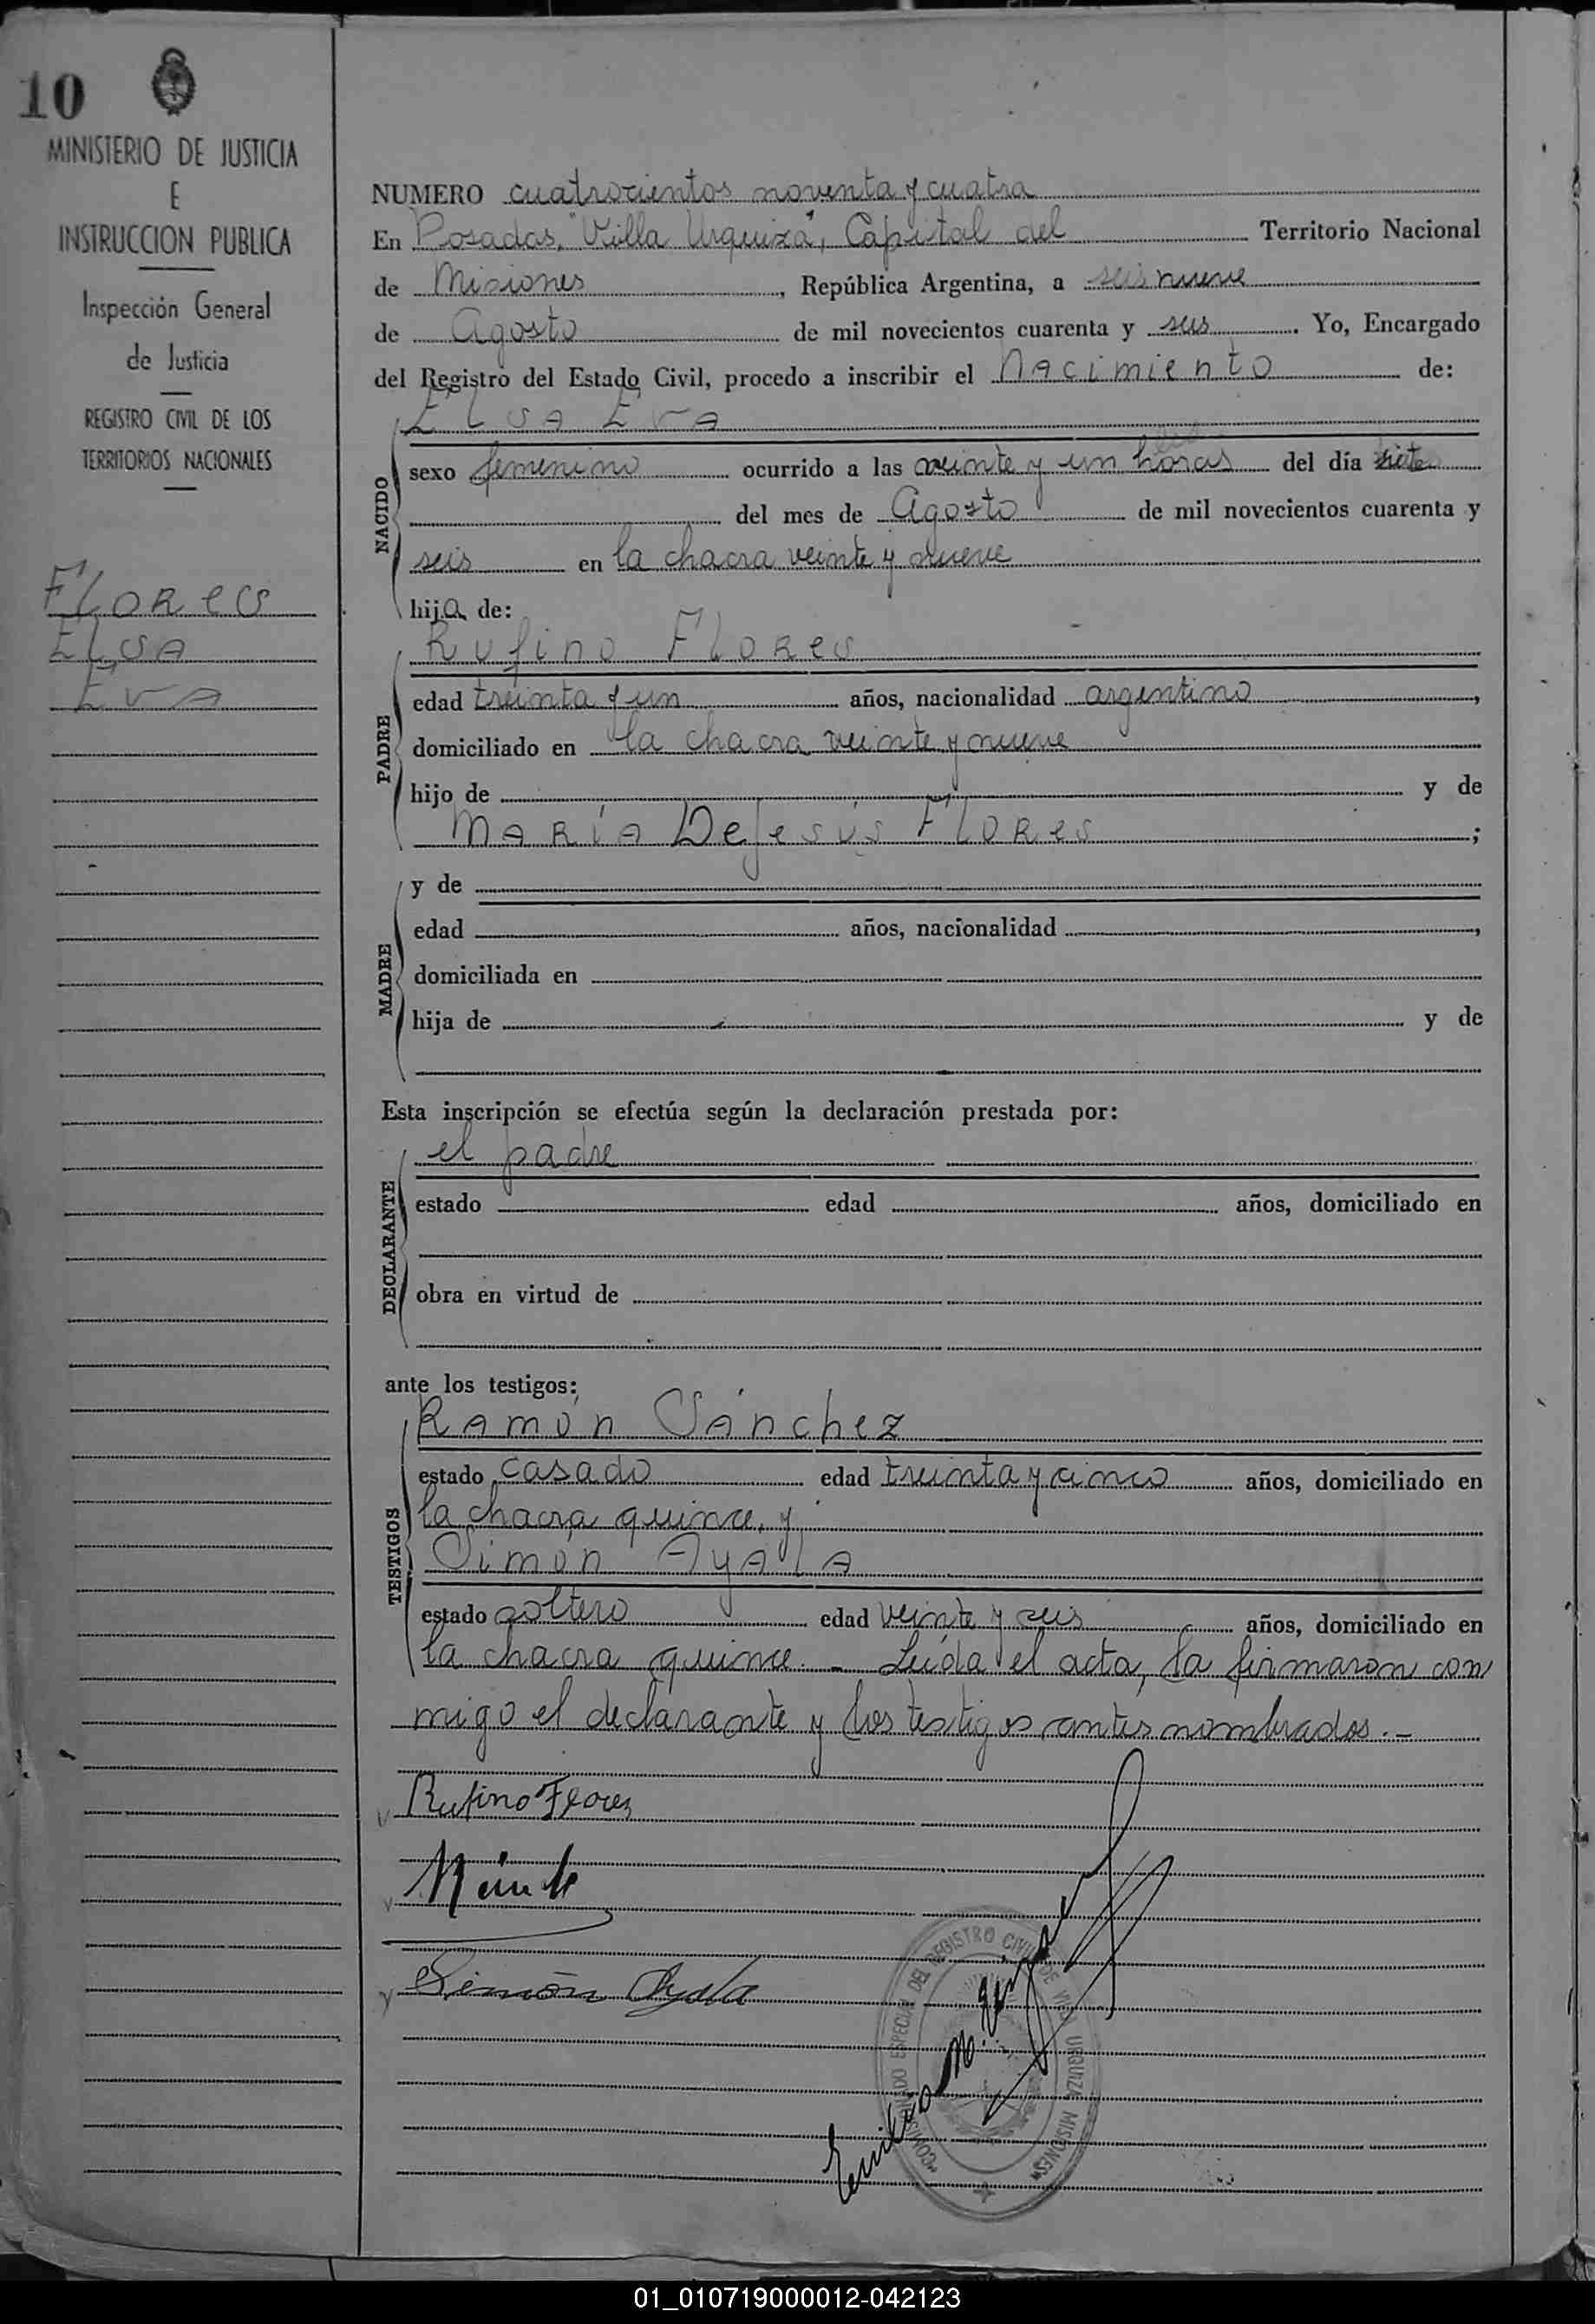 10
MINISTERIO DE JUSTICIA
E
INSTRUCCION PUBLICA
Inspección General
de Justicia
REGISTRO CIVIL DE LOS
TERRITORIOS NACIONALES
Flores
Elsa
Eva
NUMERO cuatrocientos noventa y cuatro
En Posadas, "Villa Urquiza", Capital del Territorio Nacional
de Misiones, República Argentina, a nueve
de Agosto de mil novecientos cuarenta y seis. Yo, Encargado
del Registro del Estado Civil, procedo a inscribir el Nacimiento de:
NACIDO
Elsa Eva
sexo femenino ocurrido a las veinte y un horas del día siete
del mes de Agosto de mil novecientos cuarenta y
seis en la chacra veinte y nueve
hija de:
PADRE
Rufino Flores
edad treinta y un años, nacionalidad argentino,
domiciliado en la chacra veinte y nueve
hijo de y de
María De Jesús Flores;
MADRE
y de
edad años, nacionalidad,
domiciliada en
hija de y de
Esta inscripción se efectúa según la declaración prestada por:
DECLARANTE
el padre
estado edad años, domiciliado en
obra en virtud de
ante los testigos:
TESTIGOS
Ramón Sánchez
estado casado edad treinta y cinco años, domiciliado en
la chacra quince, y
Simón Ayala
estado soltero edad veinte y seis años, domiciliado en
la chacra quince. - Leída el acta, la firmaron con
migo el declarante y los testigos antes nombrados.-
Rufino Flores
Simón Ayala
Emilio M.
COMISIONADO ESPECIAL DEL REGISTRO CIVIL DE VILLA URQUIZA MISIONES
01_010719000012-042123